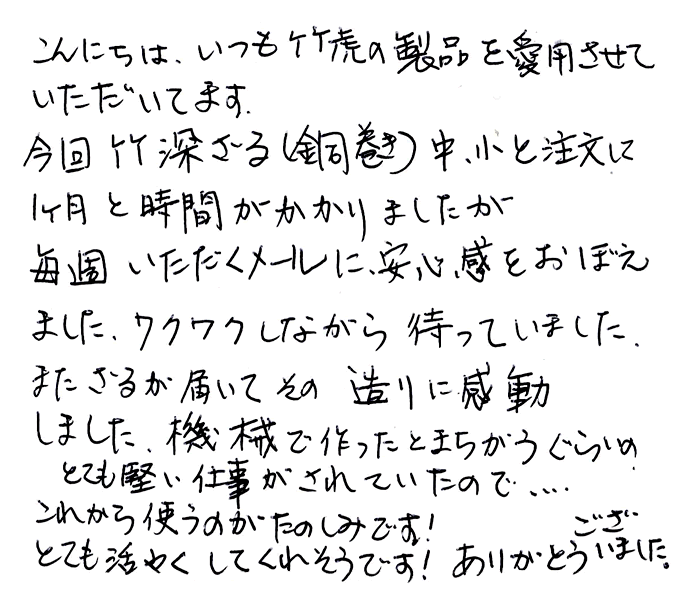 こんにちは、いつも竹虎の製品を愛用させて
いただいてます。
今回竹深ざる(銅巻き)中、小と注文に
1ヶ月と時間がかかりましたが
毎週いただくメールに、安心感をおぼえ
ました、ワクワクしながら待っていました、
またざるが届いてその造りに感動
しました、機械で作ったとまちがうぐらいの
とても堅い仕事がされていたので....
これから使うのがたのしみです!
とても活やくしてくれそうです!ありがとうございました。